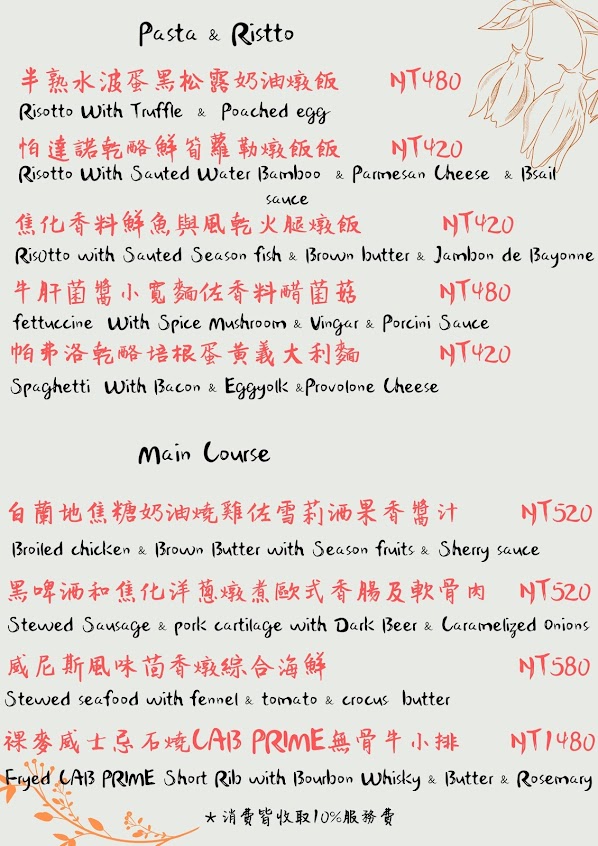 Pasta & Ristto
半熟水波蛋黑松露奶油燉飯 NT480
Risotto With Truffle & Poached egg
帕達諾乾酪鮮筍蘿勒燉飯飯 NT420
Risotto With Sauted Water Bamboo & Parmesan Cheese & Bsail
sauce
焦化香料鮮魚與風乾火腿燉飯 NT420
Risotto with Sauted Season fish & Brown butter & Jambon de Bayonne
牛肝菌醬小寬麵佐香料醋菌菇 NT480
fettuccine With Spice Mushroom & Vingar & Porcini Sauce
帕弗洛乾酪培根蛋黃義大利麵 NT420
Spaghetti With Bacon & Eggyolk &Provolone Cheese
Main Course
白蘭地焦糖奶油燒雞佐雪莉酒果香醬汁 NT520
Broiled chicken & Brown Butter with Season fruits & Sherry sauce
黑啤酒和焦化洋蔥燉煮歐式香腸及軟骨肉 NT520
Stewed Sausage & pork cartilage with Dark Beer & Caramelized Onions
威尼斯風味茴香燉綜合海鮮 NT580
Stewed seafood with fennel & tomato & crocus butter
裸麥威士忌石燒CAB PRIME無骨牛小排 NT1480
Fryed CAB PRIME Short Rib with Bourbon Whisky & Butter & Rosemary
★消費皆收取10%服務費